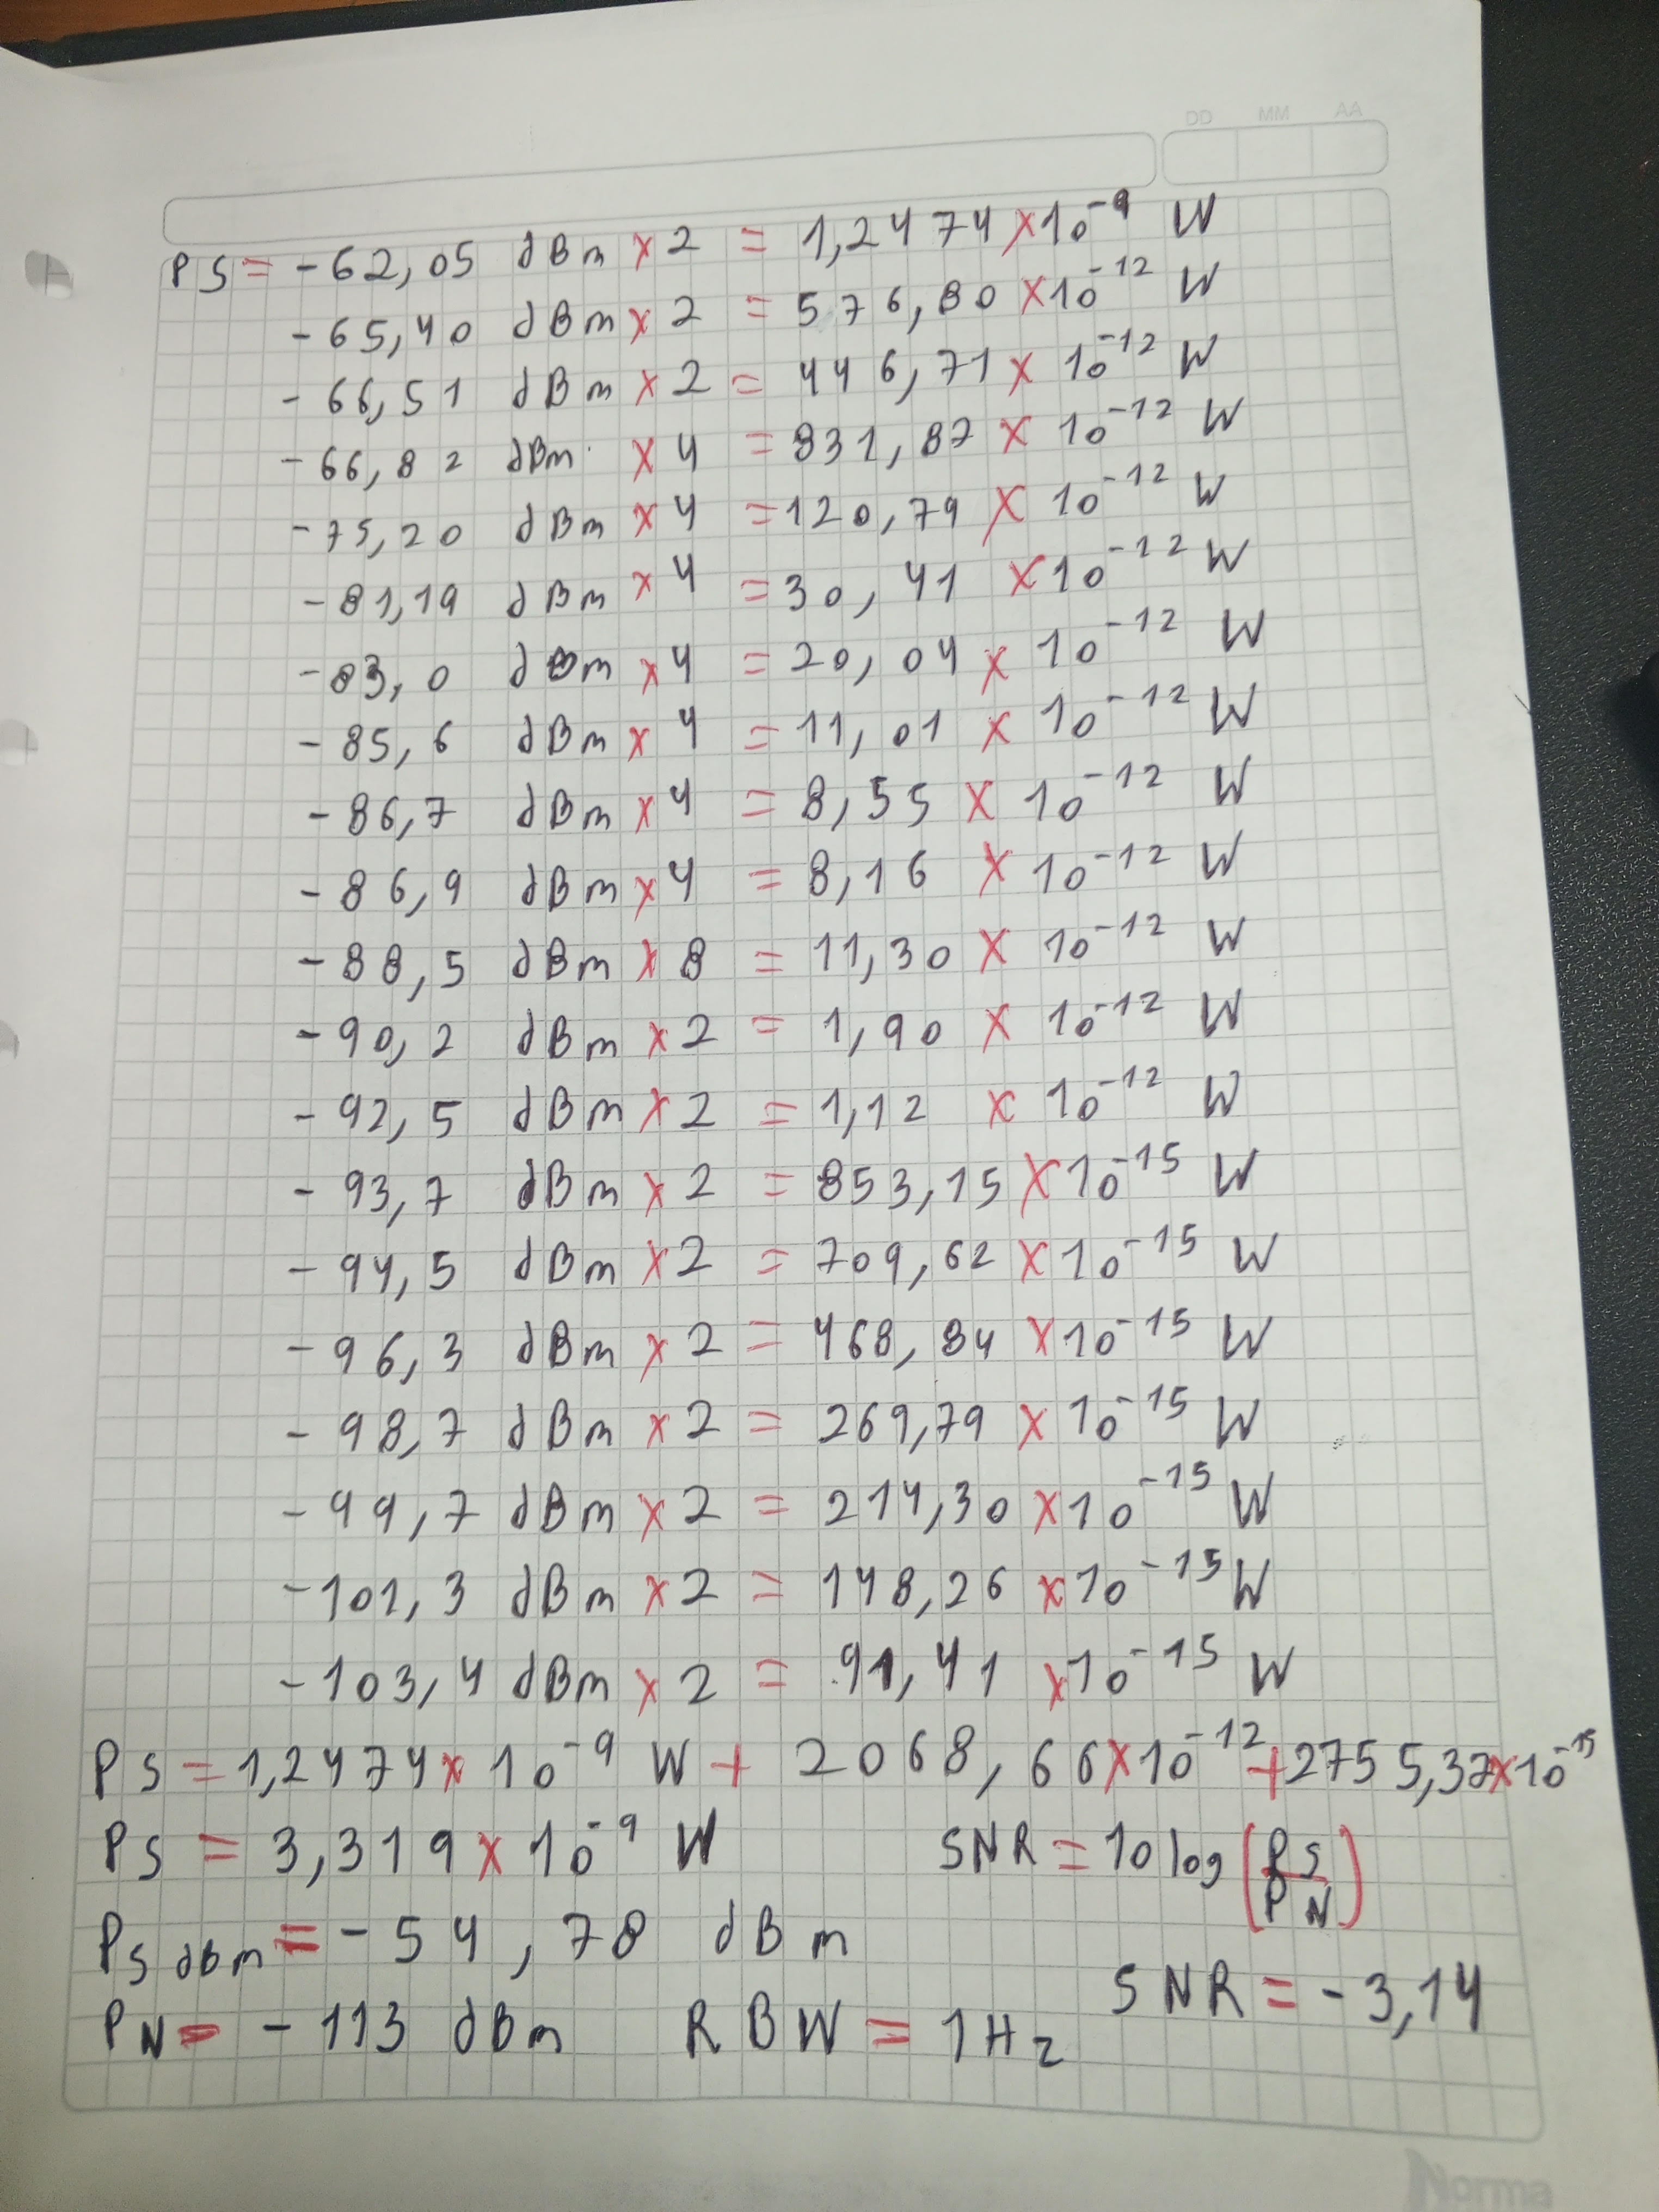 DD MM AA
PS = -62,05 dBm × 2 = 1,2474 × 10^-9 W
-65,40 dBm × 2 = 576,80 × 10^-12 W
-66,51 dBm × 2 = 446,71 × 10^-12 W
-66,82 dBm × 4 = 831,87 × 10^-12 W
-75,20 dBm × 4 = 120,79 × 10^-12 W
-81,19 dBm × 4 = 30,41 × 10^-12 W
-83,0 dBm × 4 = 20,04 × 10^-12 W
-85,6 dBm × 4 = 11,01 × 10^-12 W
-86,7 dBm × 4 = 8,55 × 10^-12 W
-86,9 dBm × 4 = 8,16 × 10^-12 W
-88,5 dBm × 8 = 11,30 × 10^-12 W
-90,2 dBm × 2 = 1,90 × 10^-12 W
-92,5 dBm × 2 = 1,12 × 10^-12 W
-93,7 dBm × 2 = 853,15 × 10^-15 W
-94,5 dBm × 2 = 709,62 × 10^-15 W
-96,3 dBm × 2 = 468,84 × 10^-15 W
-98,7 dBm × 2 = 269,79 × 10^-15 W
-99,7 dBm × 2 = 214,30 × 10^-15 W
-101,3 dBm × 2 = 148,26 × 10^-15 W
-103,4 dBm × 2 = 91,41 × 10^-15 W
PS = 1,2474 × 10^-9 W + 2068,66 × 10^-12 + 2755,37 × 10^-15
PS = 3,319 × 10^-9 W
SNR = 10 log (PS/PN)
PS dBm = -54,78 dBm
SNR = -3,14
PN = -113 dBm RBW = 1Hz
Norma